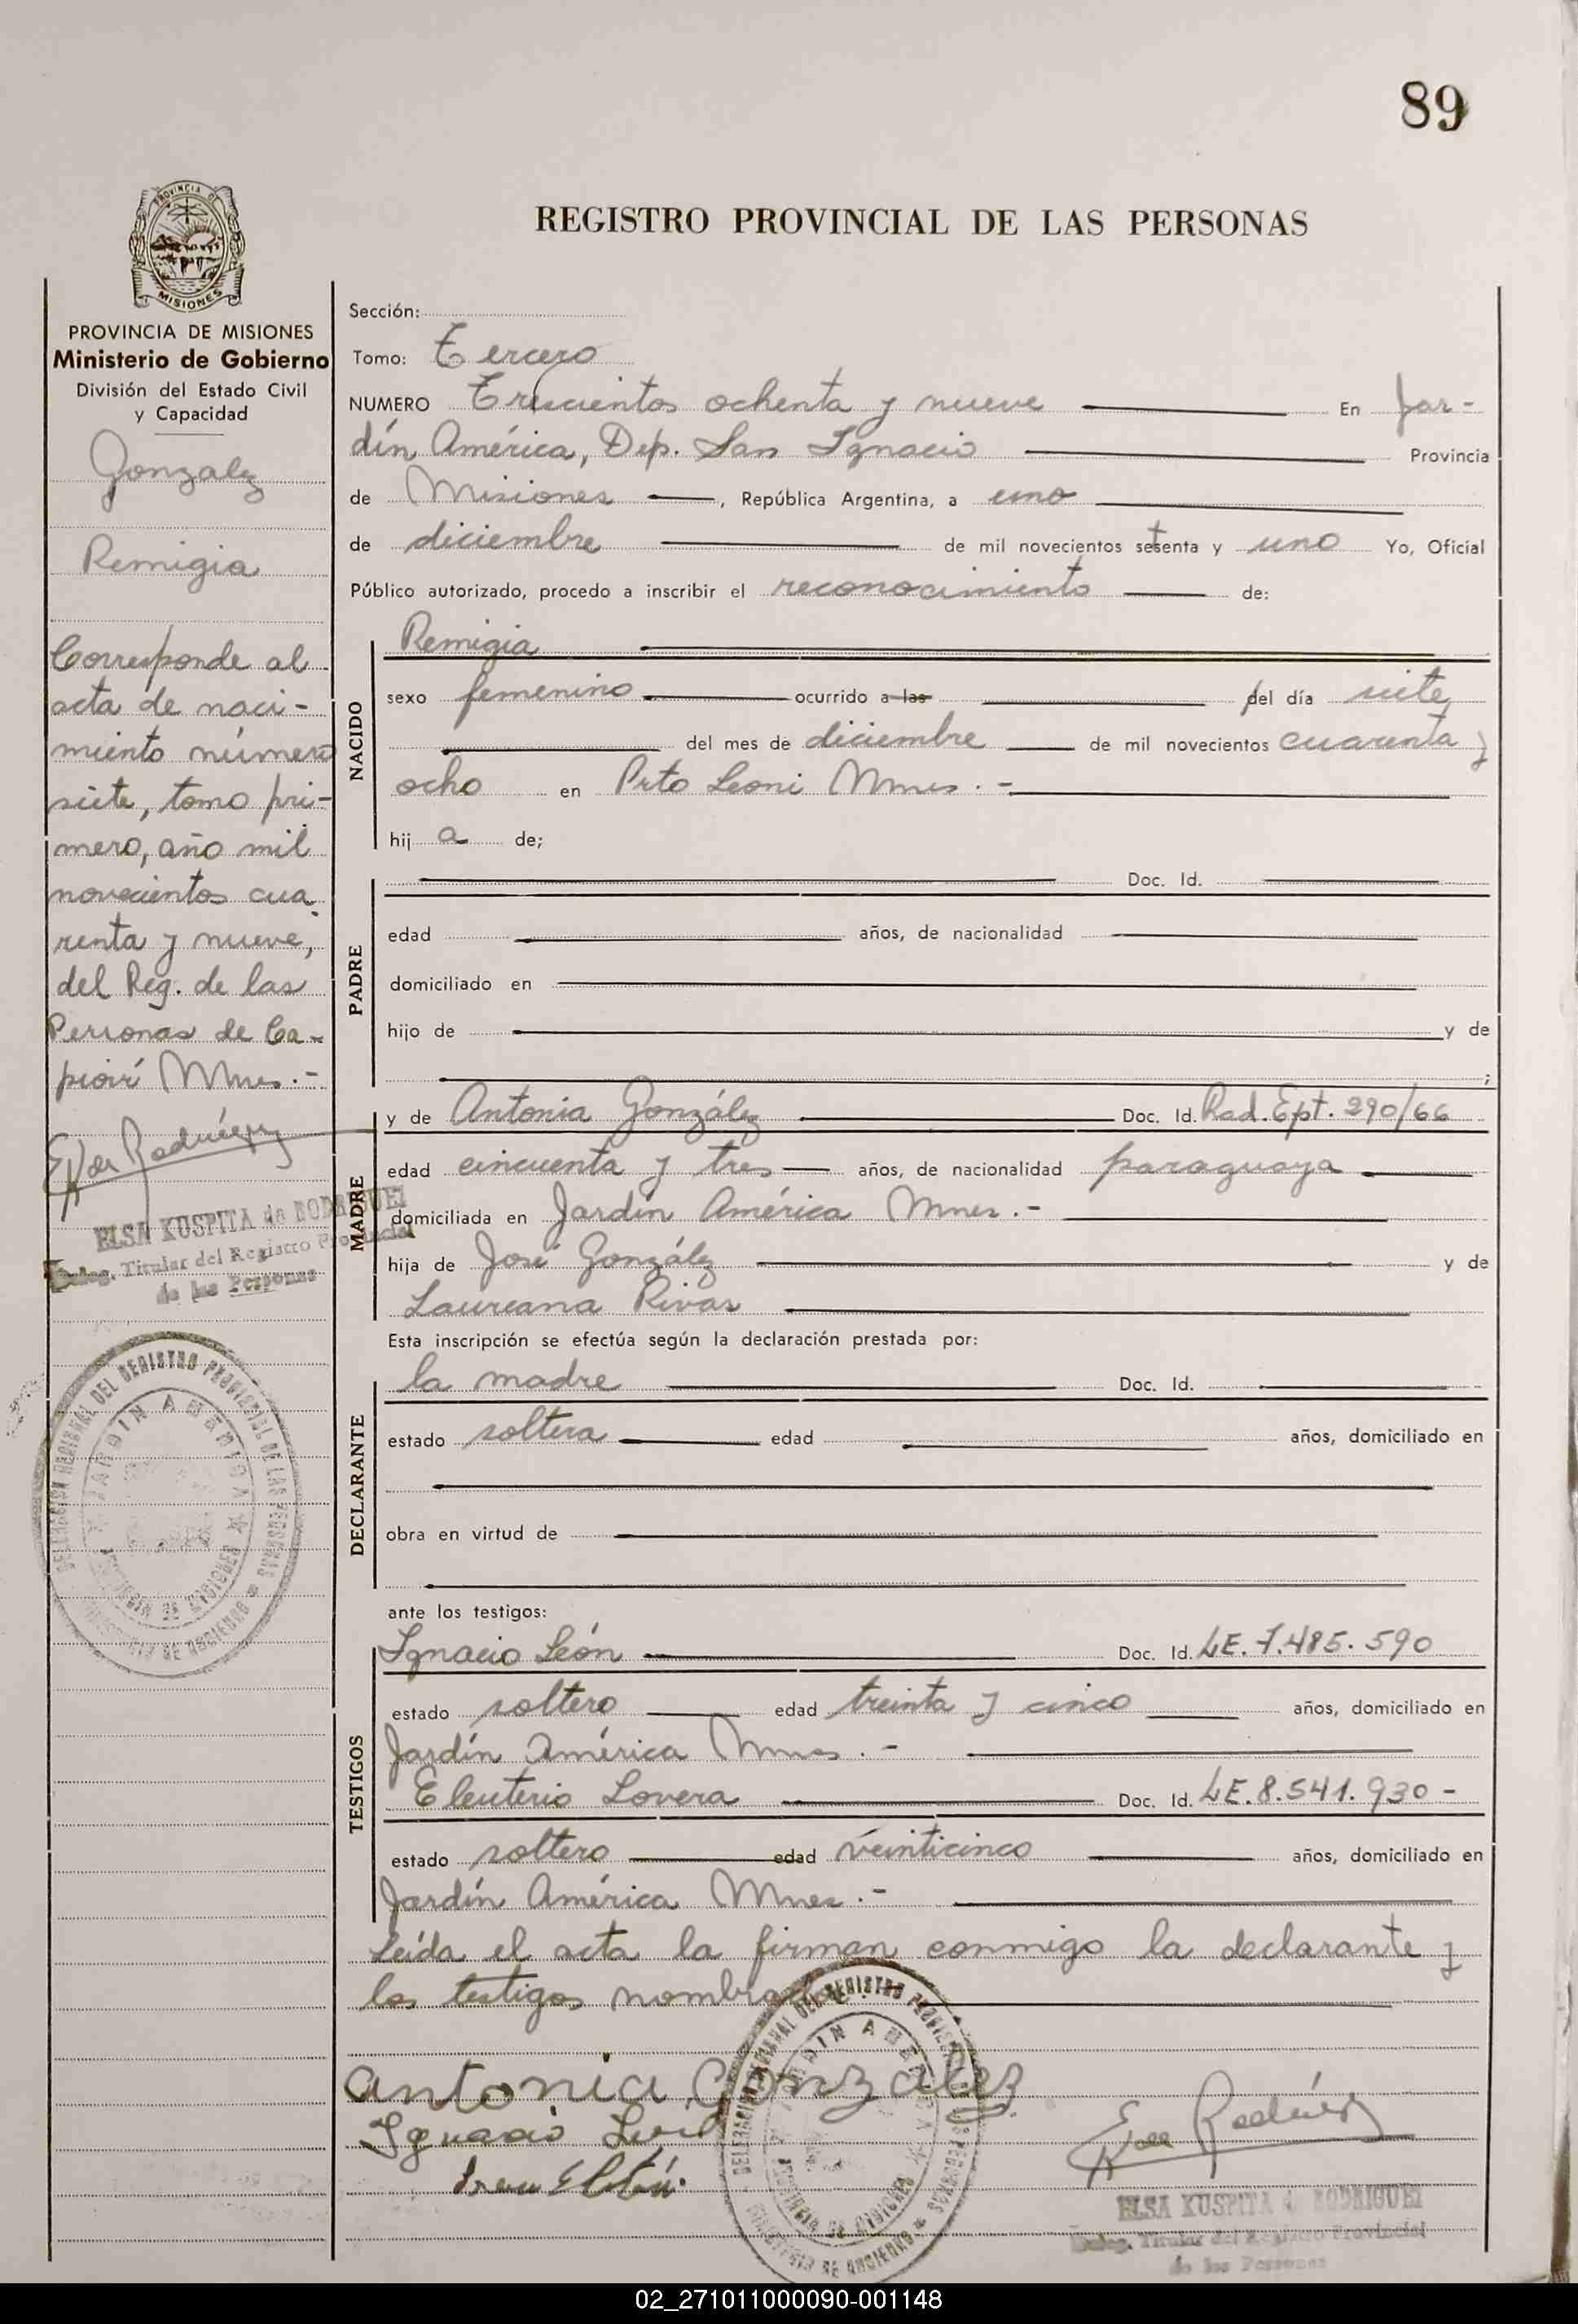 89
PROVINCIA DE
MISIONES
REGISTRO PROVINCIAL DE LAS PERSONAS
PROVINCIA DE MISIONES
Ministerio de Gobierno
División del Estado Civil
y Capacidad
Gonzalez
Remigia
Corresponde al
acta de naci-
miento número
siete, tomo pri-
mero, año mil
novecientos cua
renta y nueve,
del Reg. de las
Personas de Ca-
pioví Mnes.-
ELSA KUSPITA de RODRIGUEZ
Deleg. Titular del Registro Provincial
de las Personas
DELEGACION REGIONAL DEL REGISTRO PROVINCIAL DE LAS PERSONAS
JARDIN AMERICA
PROVINCIA DE MISIONES
MINISTERIO DE GOBIERNO
Sección:
Tomo: Tercero
NUMERO Trescientos ochenta y nueve En Jar-
dín América, Dep. San Ignacio Provincia
de Misiones, República Argentina, a uno
de diciembre de mil novecientos setenta y uno Yo, Oficial
Público autorizado, procedo a inscribir el reconocimiento de:
NACIDO
Remigia
sexo femenino ocurrido a las del día siete
del mes de diciembre de mil novecientos cuarenta y
ocho en Prto Leoni Mnes.-
hij a de;
PADRE
Doc. Id.
edad años, de nacionalidad
domiciliado en
hijo de y de
;
MADRE
y de Antonia González Doc. Id. Rad. Ept. 290/66
edad cincuenta y tres años, de nacionalidad paraguaya
domiciliada en Jardín América Mnes.-
hija de José González y de
Laureana Rivas
Esta inscripción se efectúa según la declaración prestada por:
DECLARANTE
la madre Doc. Id.
estado soltera edad años, domiciliado en
obra en virtud de
ante los testigos:
TESTIGOS
Ignacio León Doc. Id. LE. 7.485.590
estado soltero edad treinta y cinco años, domiciliado en
Jardín América Mnes.-
Eleuterio Lovera Doc. Id. LE. 8.541.930-
estado soltero edad veinticinco años, domiciliado en
Jardín América Mnes.-
Leída el acta la firman conmigo la declarante y
los testigos nombrados
antonia Gonzalez
Ignacio León
DELEGACION REGIONAL DEL REGISTRO PROVINCIAL DE LAS PERSONAS
JARDIN AMERICA
PROVINCIA DE MISIONES
MINISTERIO DE GOBIERNO
ELSA KUSPITA de RODRIGUEZ
Deleg. Titular del Registro Provincial
de las Personas
02_271011000090-001148